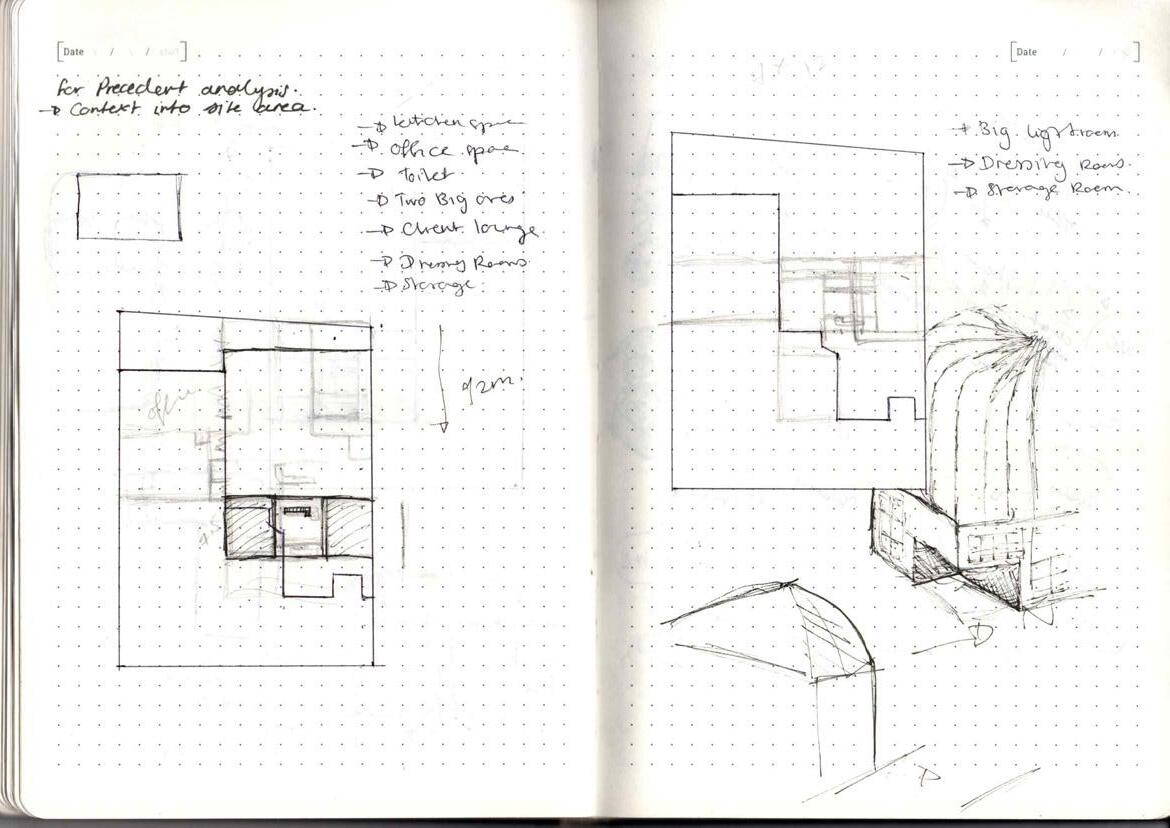 Date / /
for Precedent analysis.
→ Context into site area.
→ kitchen space
→ office space
→ Toilet
→ Two Big ones
→ Client lounge
→ Dressing Rooms.
→ Storage.
office
92m.
Date / /
→ Big lightroom.
→ Dressing Rooms.
→ Storage Room.